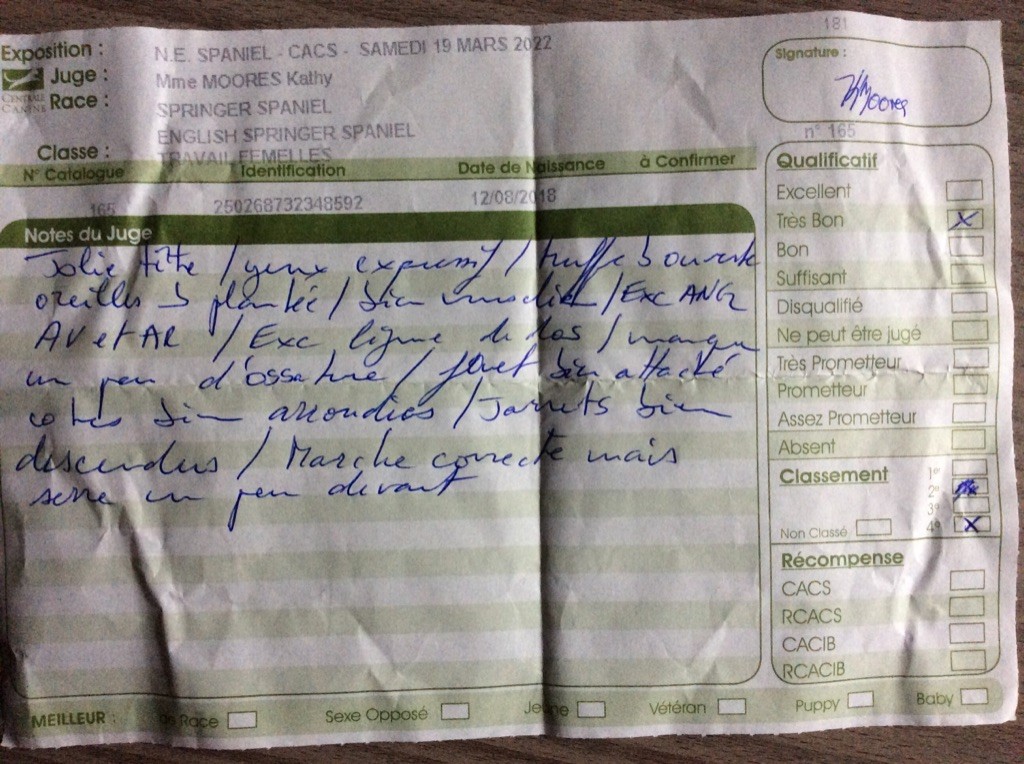 181
Exposition : N.E. SPANIEL - CACS - SAMEDI 19 MARS 2022
Juge : Mme MOORES Kathy
CENTRALE CANINE
Race : SPRINGER SPANIEL
ENGLISH SPRINGER SPANIEL
Classe : TRAVAIL FEMELLES
Signature :
KMoores
n° 165
N° Catalogue Identification Date de Naissance à Confirmer
165 250268732348592 12/08/2018
Notes du Juge
Jolie tête / yeux expressif / truffe b ouverte
oreilles b plantée / bien / Exc ANG
AV et AR / Exc ligne de dos / manque
un peu d'ossature / fouet bien attaché
cotes bien arrondies / Jarrets bien
descendus / Marche correcte mais
serre un peu devant
Qualificatif
Excellent
Très Bon X
Bon
Suffisant
Disqualifié
Ne peut être jugé
Très Prometteur
Prometteur
Assez Prometteur
Absent
Classement 1°
2°
3°
Non Classé 4° X
Récompense
CACS
RCACS
CACIB
RCACIB
MEILLEUR : de Race Sexe Opposé Jeune Vétéran Puppy Baby